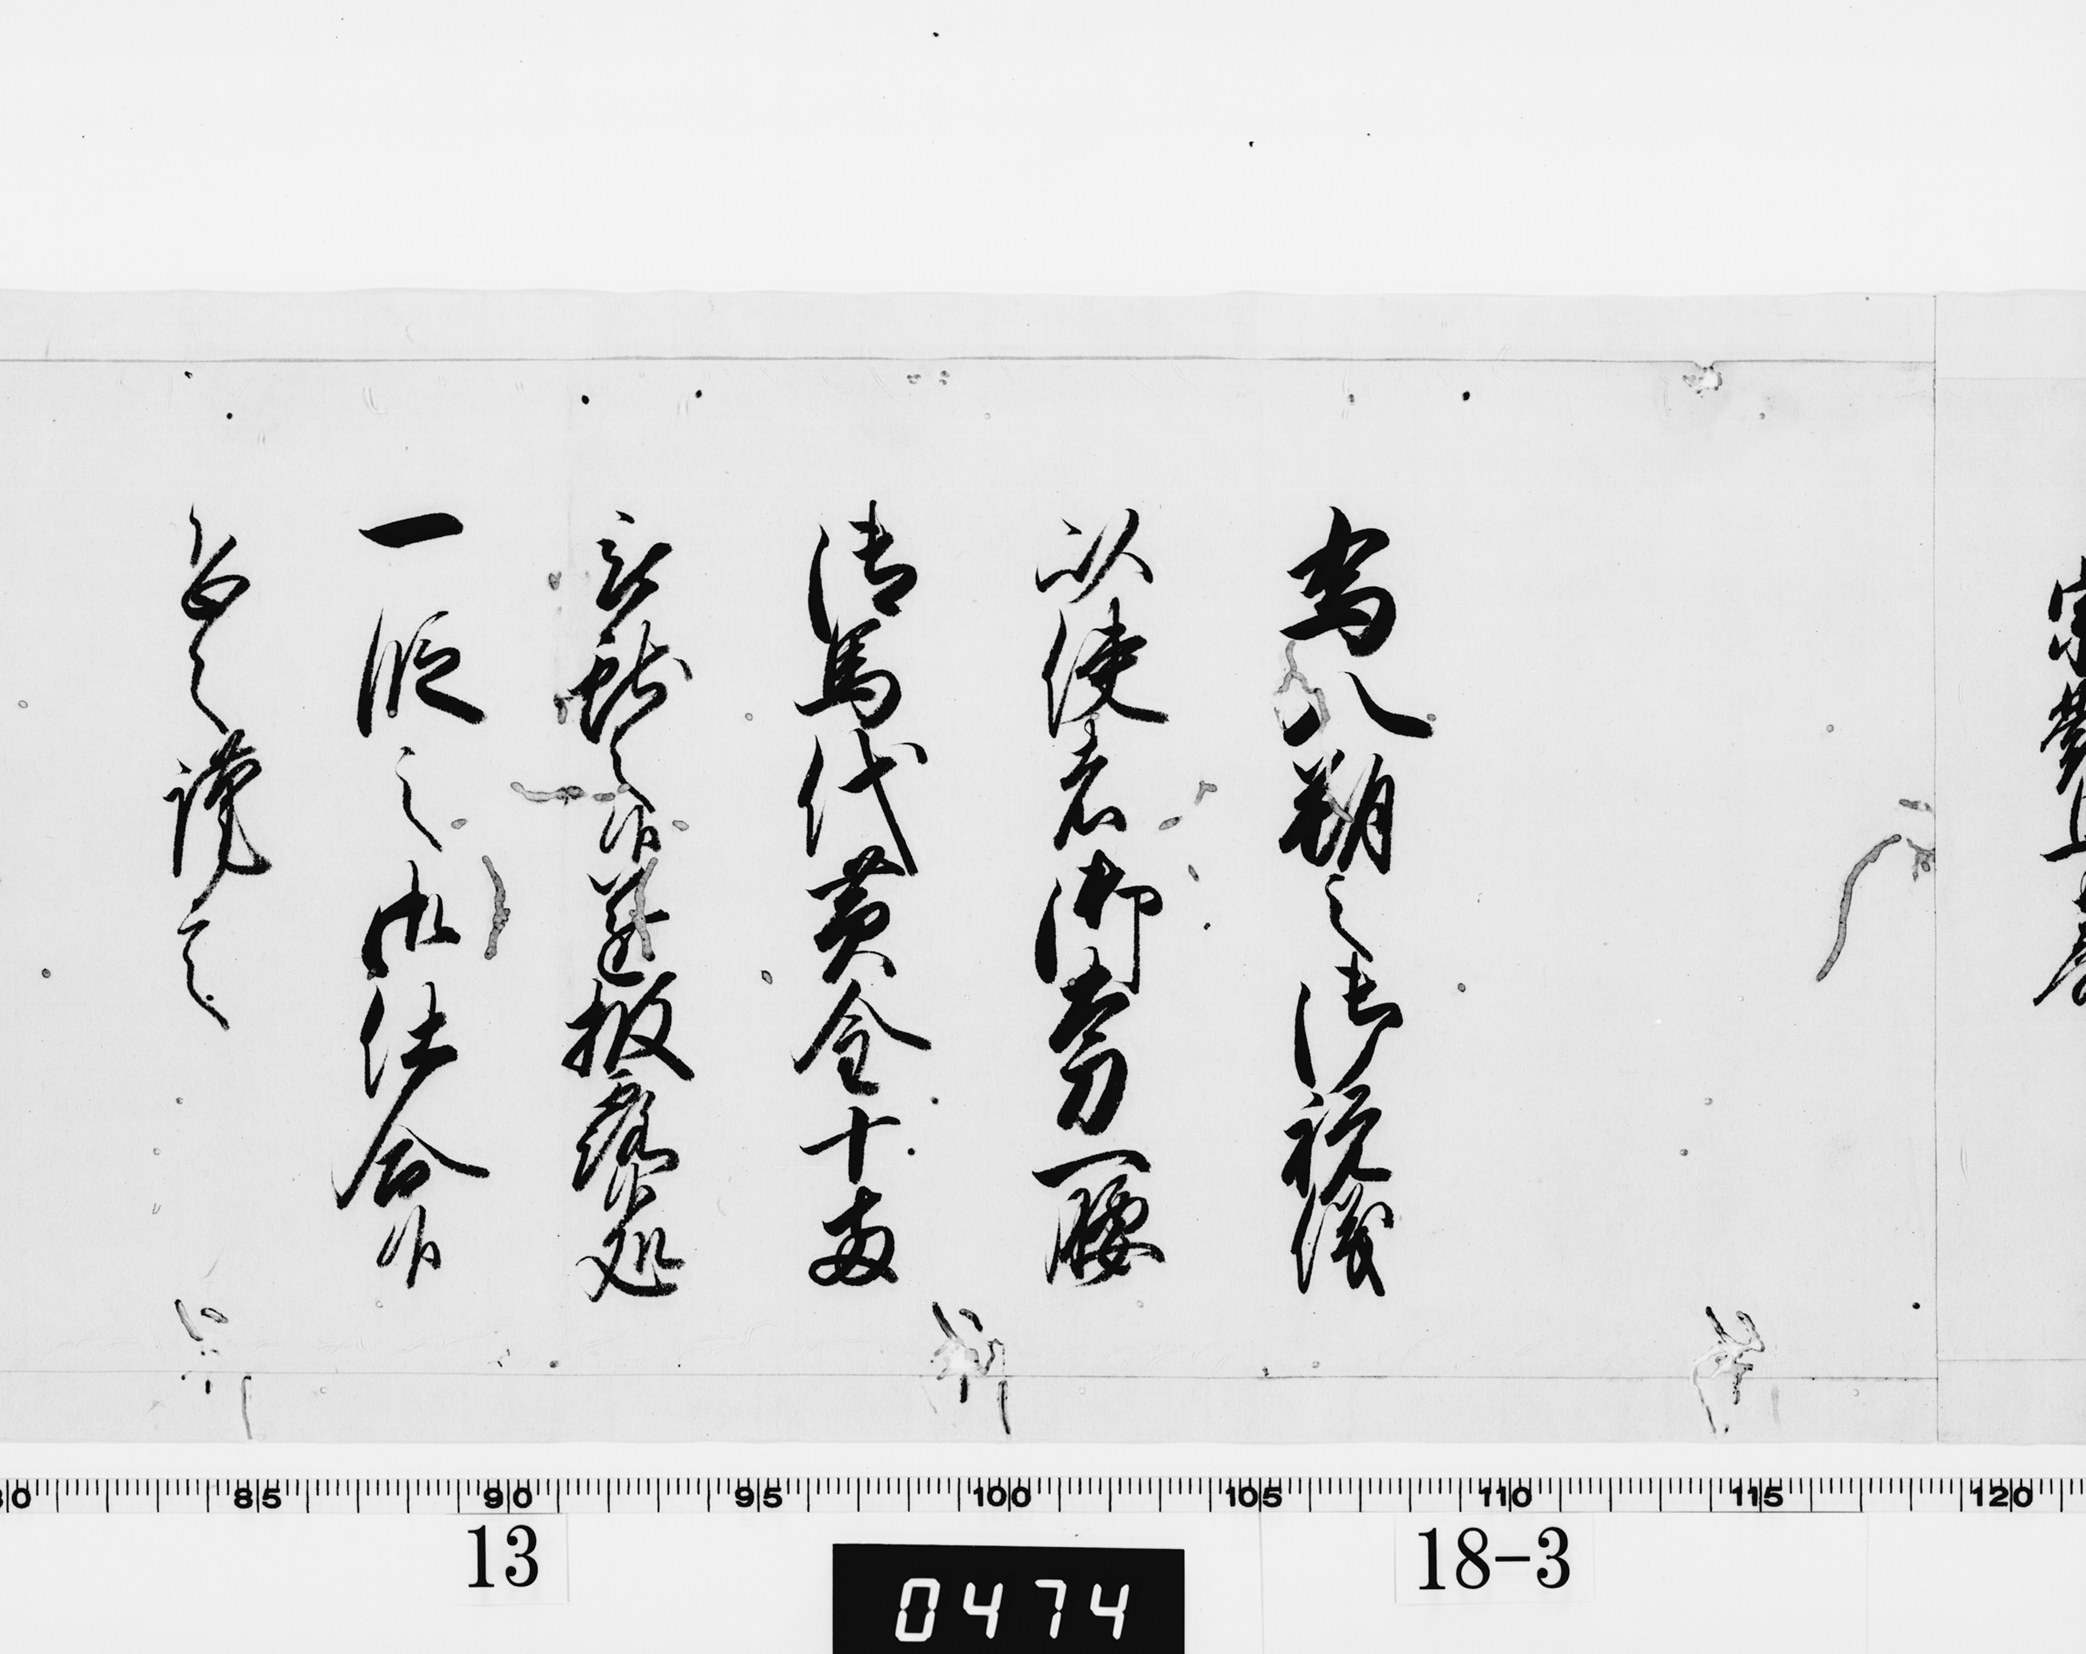 当八朔之御祝儀
以使者御太刀一腰
御馬代黄金十両
被献之候遂披露候処
一段之御仕合候
恐々謹言
80 85 90 95 100 105 110 115 120
13
0474
18-3